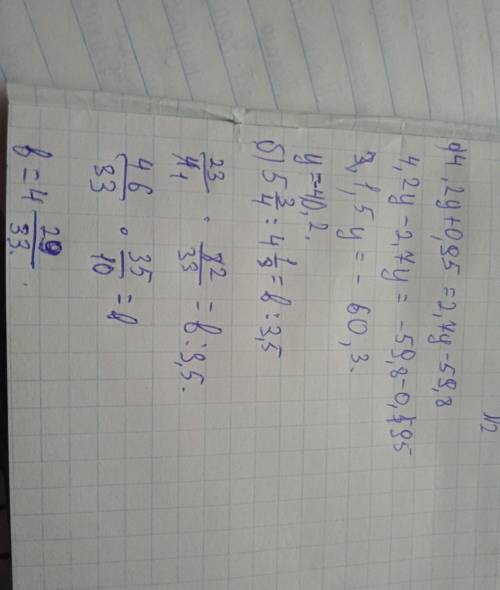 N2
а) 4,2y+0,85=2,7y-59,8
4,2y-2,7y=-59,8-0,585
1,5y=-60,3.
y=-40,2.
б) 5 3/4 : 4 1/8 = b : 3,5
23/4 1 · 8 2/33 = b : 3,5.
46/33 · 35/10 = b
b = 4 29/33.